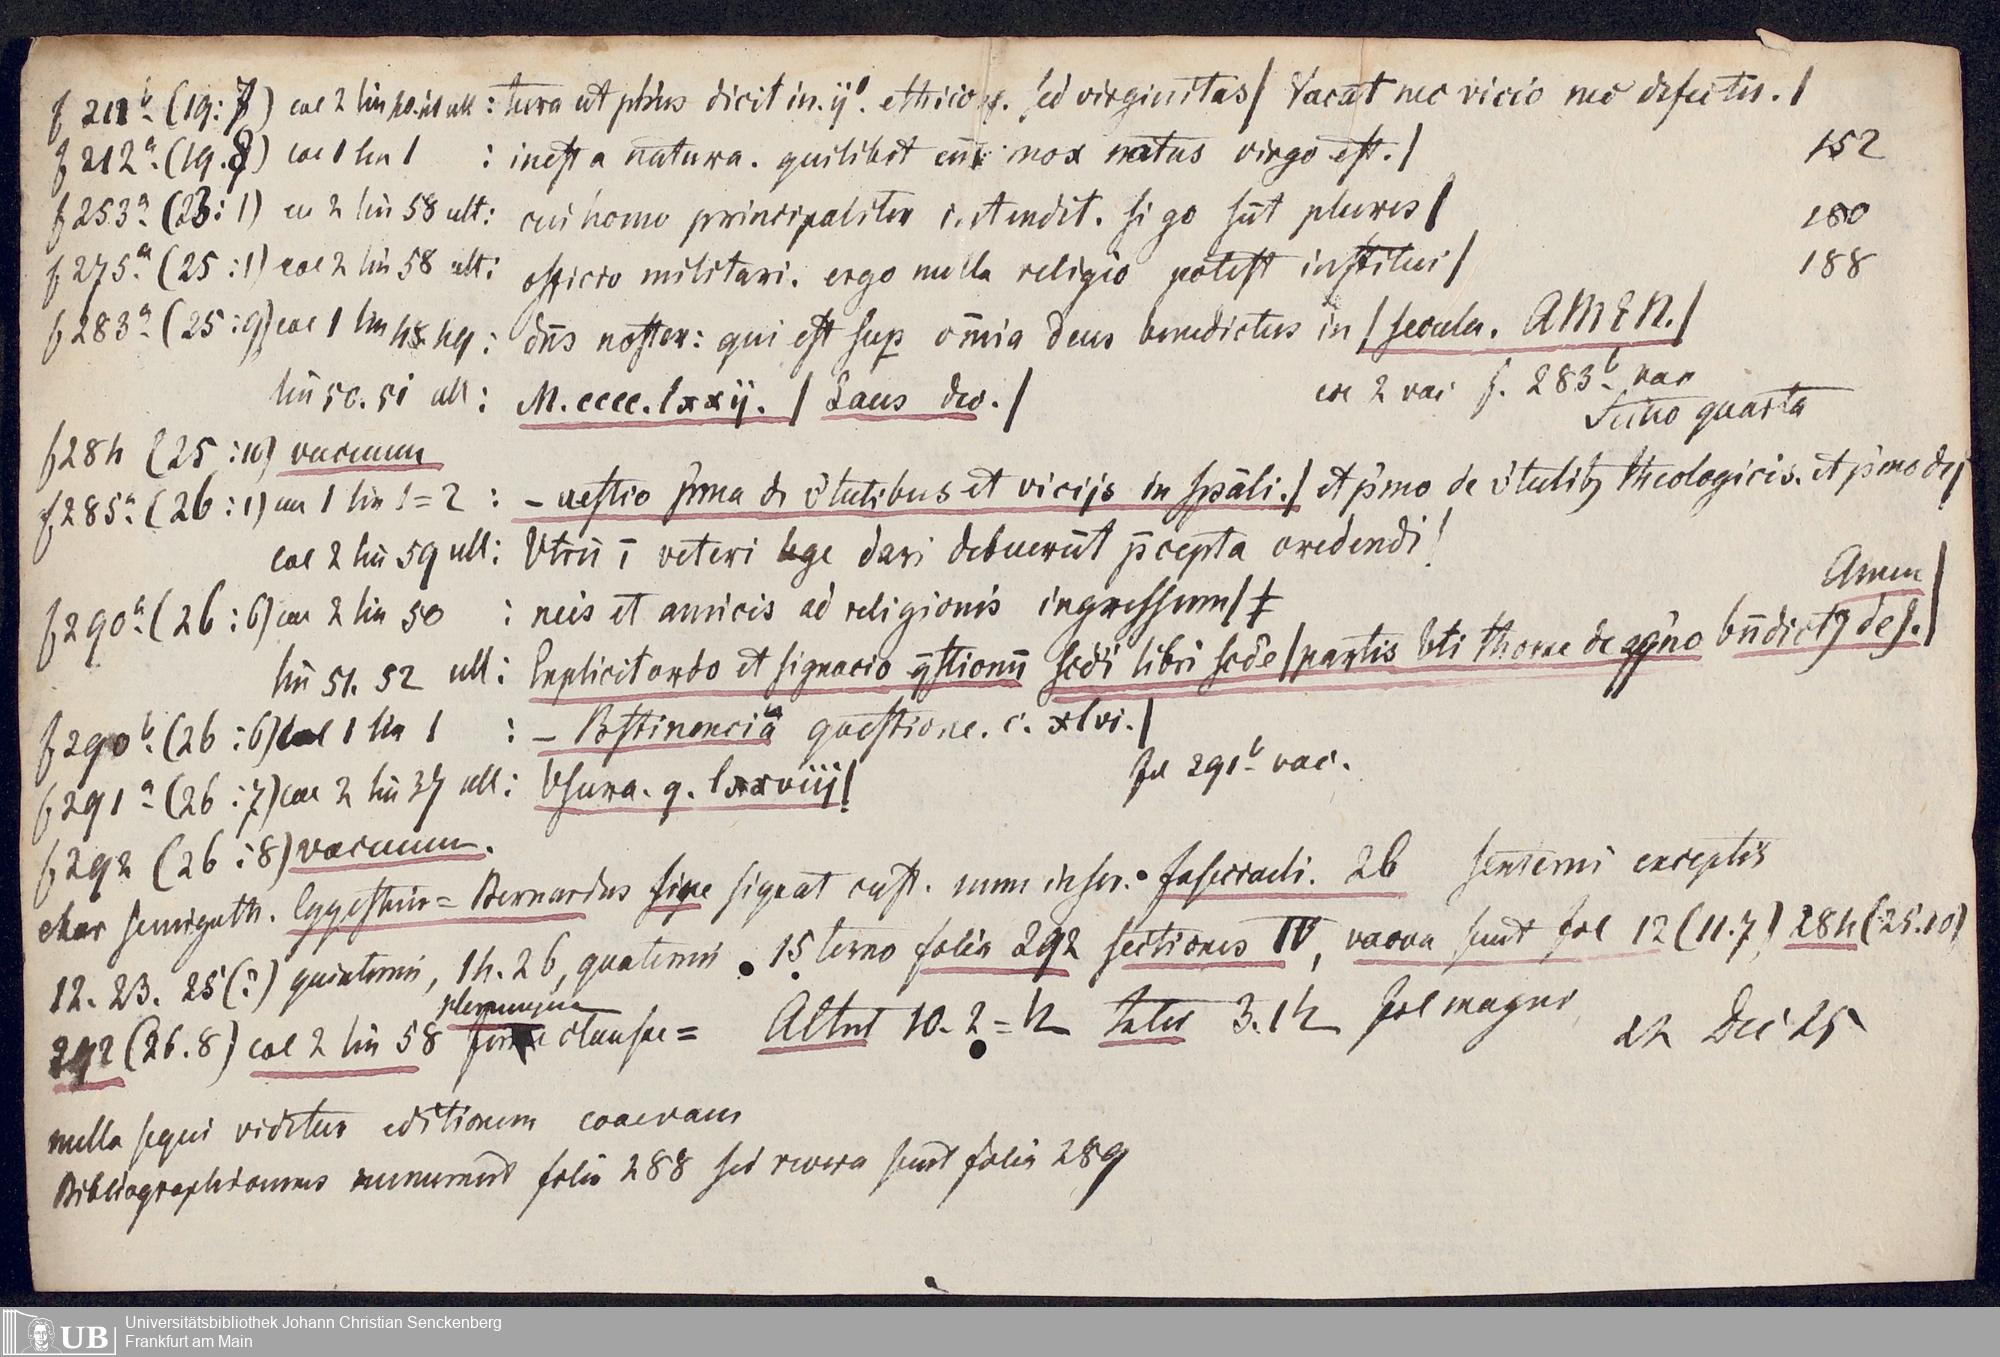 f 211b (19:7) col 2 lin ult : tura ut phus dicit in .ij°. ethico. sed virginitas / Vacāt nec vicio nec defectu. /
f 212a. (19.8) col 1 lin 1 : inest a natura. quilibet mox natus virgo est. / 152
f 253a (23:1) col 2 lin 58 ult: cui homo principaliter intendit. si go sūt plures / 180
f 275a (25:1) col 2 lin 58 ult: officio militari. ergo nulla religio potest institui / 188
f 283a (25:9) col 1 lin 48. 49 : dn̄s noster: qui est sup om̄ia deus benedictus in / secula. AMEN. /
lin 50. 51 ult : M.cccc.lxxij. / Laus deo. / col 2 vac f. 283b vac
quarta
f 284 (25:10) vacuum
f 285a (26:1) col 1 lin 1=2 : – uestio p̄ma de v̄tutibus et vicijs in spāli. / et p̄mo de v̄tutibꝫ theologicis. et p̄mo de /
col 2 lin 59 ult: Vtrū ī veteri lege dari debuerūt p̄cepta credendi /
f 290a (26:6) col 2 lin 50 : neis et amicis ad religionis ingressum / Amen /
lin 51. 52 ult: Explicit ordo et signacio q̄stionū scd̄i libri scd̄e / partis b̄ti thome de aq̄no bn̄dictꝰ deꝰ. /
f 290b (26:6) col 1 lin 1 : – Bstinencia questione. c. xlvi. /
f 291a (26:7) col 2 lin 37 ult: Vsura. q. lxxviij / fol 291b vac.
f 292 (26:8) vacuum.
char semigoth. Eggestein = Bernardus sine signat cust. num inser. fasciculi. 26 sexterni exceptis
12. 23. 25 (?) quinterni, 14. 26, quaterni . 15 terno folia 292 sectiones IV, vacua sunt fol 12 (11.7) 284 (25.10)
plerumque
292 (26.8) col 2 lin 58 fine clausae = Altit 10. 2=4 Latit 3. 14 fol magni 24 Dec 25
nulla sequi videtur editionem coaevam
Bibliographi omnes numerant folia 288 sed revera sunt folia 289
UB Universitätsbibliothek Johann Christian Senckenberg
Frankfurt am Main